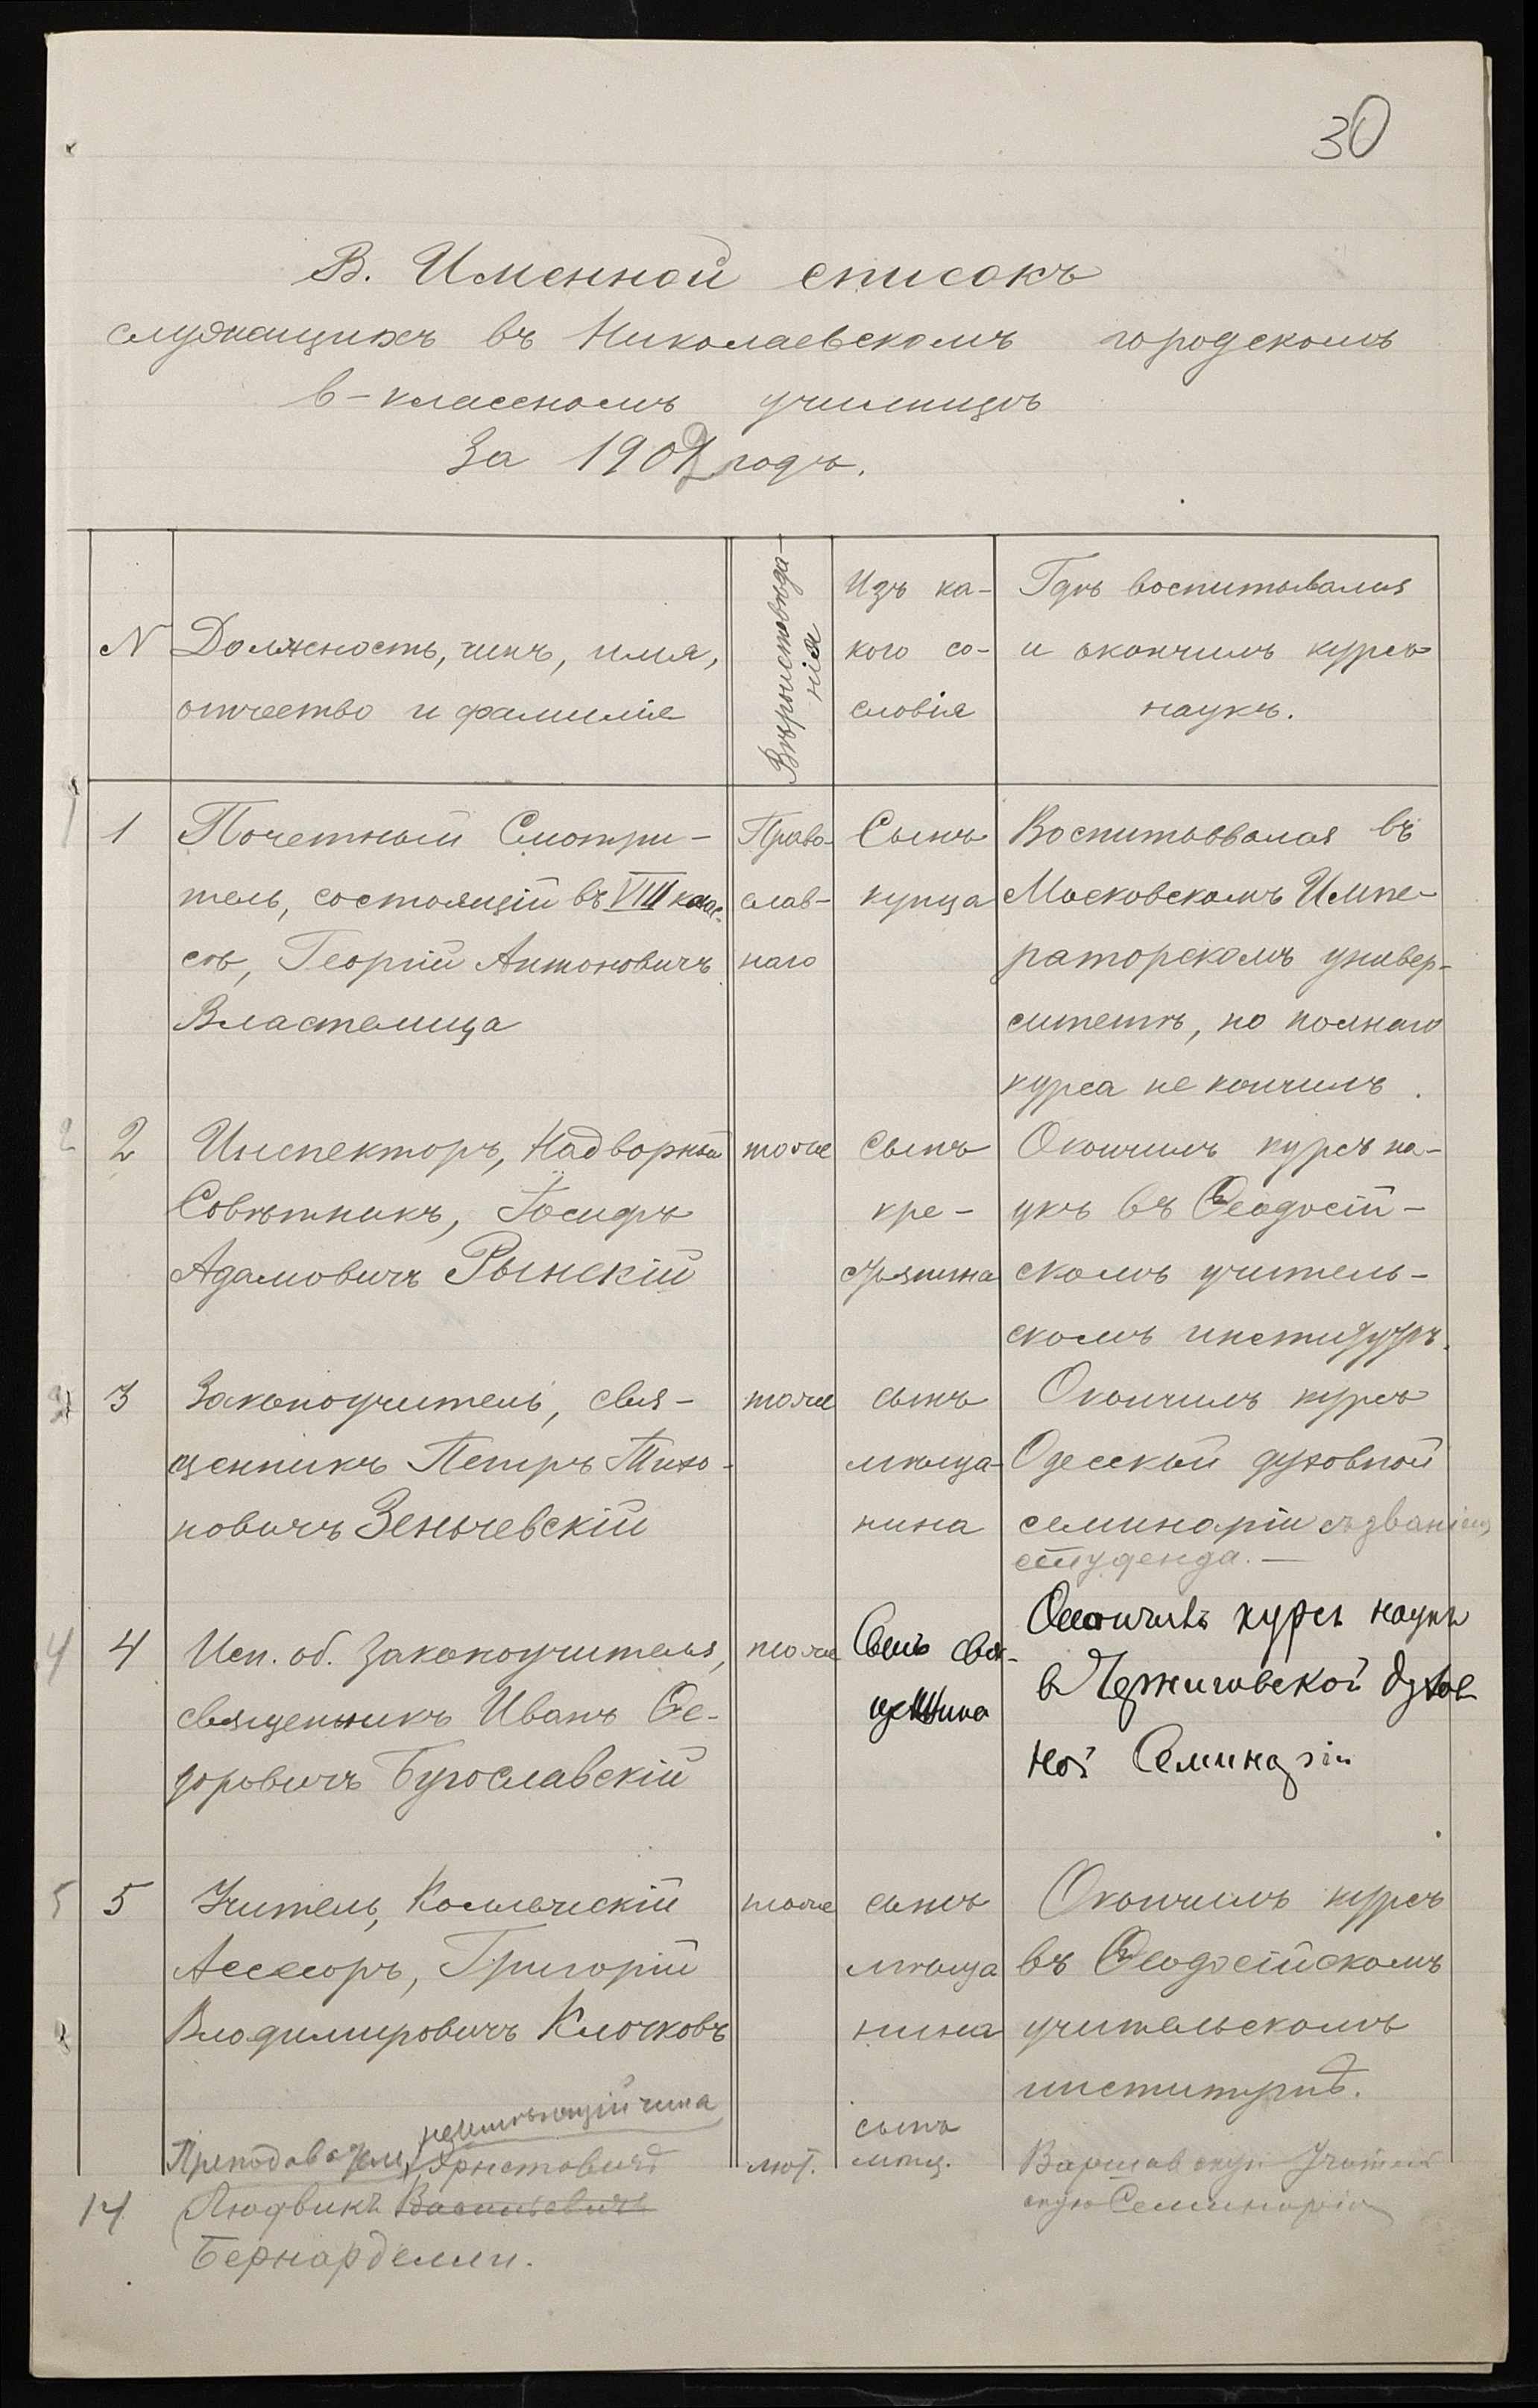 30
В. Именной списокъ
служащихъ въ Николаевскомъ городскомъ
6-классномъ училищѣ
За 1902 годъ.
N
Должность, чинъ, имя,
отчество и фамилія
Вѣроисповѣда-
нія
Изъ ка-
кого со-
словія
Гдѣ воспитывался
и окончилъ курсъ
наукъ.
1
1
Почетный Смотри-
тель, состоящій въ VIII клас-
сѣ, Георгій Антоновичъ
Властелица
Право-
слав-
наго
Сынъ
купца
Воспитывался въ
Московскомъ Импе-
раторскомъ универ-
ситетѣ, но полнаго
курса не кончилъ.
2
2
Инспекторъ, Надворный
Совѣтникъ, Іосифъ
Адамовичъ Рынскій
тоже
сынъ
кре-
стьянина
Окончилъ курсъ на-
укъ въ Ѳеодосій-
скомъ учитель-
скомъ институтѣ.
3
3
Законоучитель, свя-
щенникъ Петръ Тихо-
новичъ Зеньчевскій
тоже
сынъ
мѣща-
нина
Окончилъ курсъ
Одесской духовной
семинаріи съ званіемъ
студента. —
4
4
Исп. об. законоучителя,
священникъ Иванъ Ѳе-
доровичъ Бугославскій
тоже
Сынъ свя-
щенника
Окончилъ курсъ наукъ
въ Черниговской духов-
ной Семинаріи
5
5
Учитель, Коллежскій
Ассесоръ, Григорій
Владимировичъ Клочковъ
тоже
сынъ
мѣща
нина
Окончилъ курсъ
въ Ѳеодосійскомъ
учительскомъ
институтѣ.
14
неимѣющій чина
Преподаватель,
Людвикъ Васильевичъ
Бернарделли.
лют.
сынъ
мѣщ.
Варшавскую Учитель
скую Семинарію